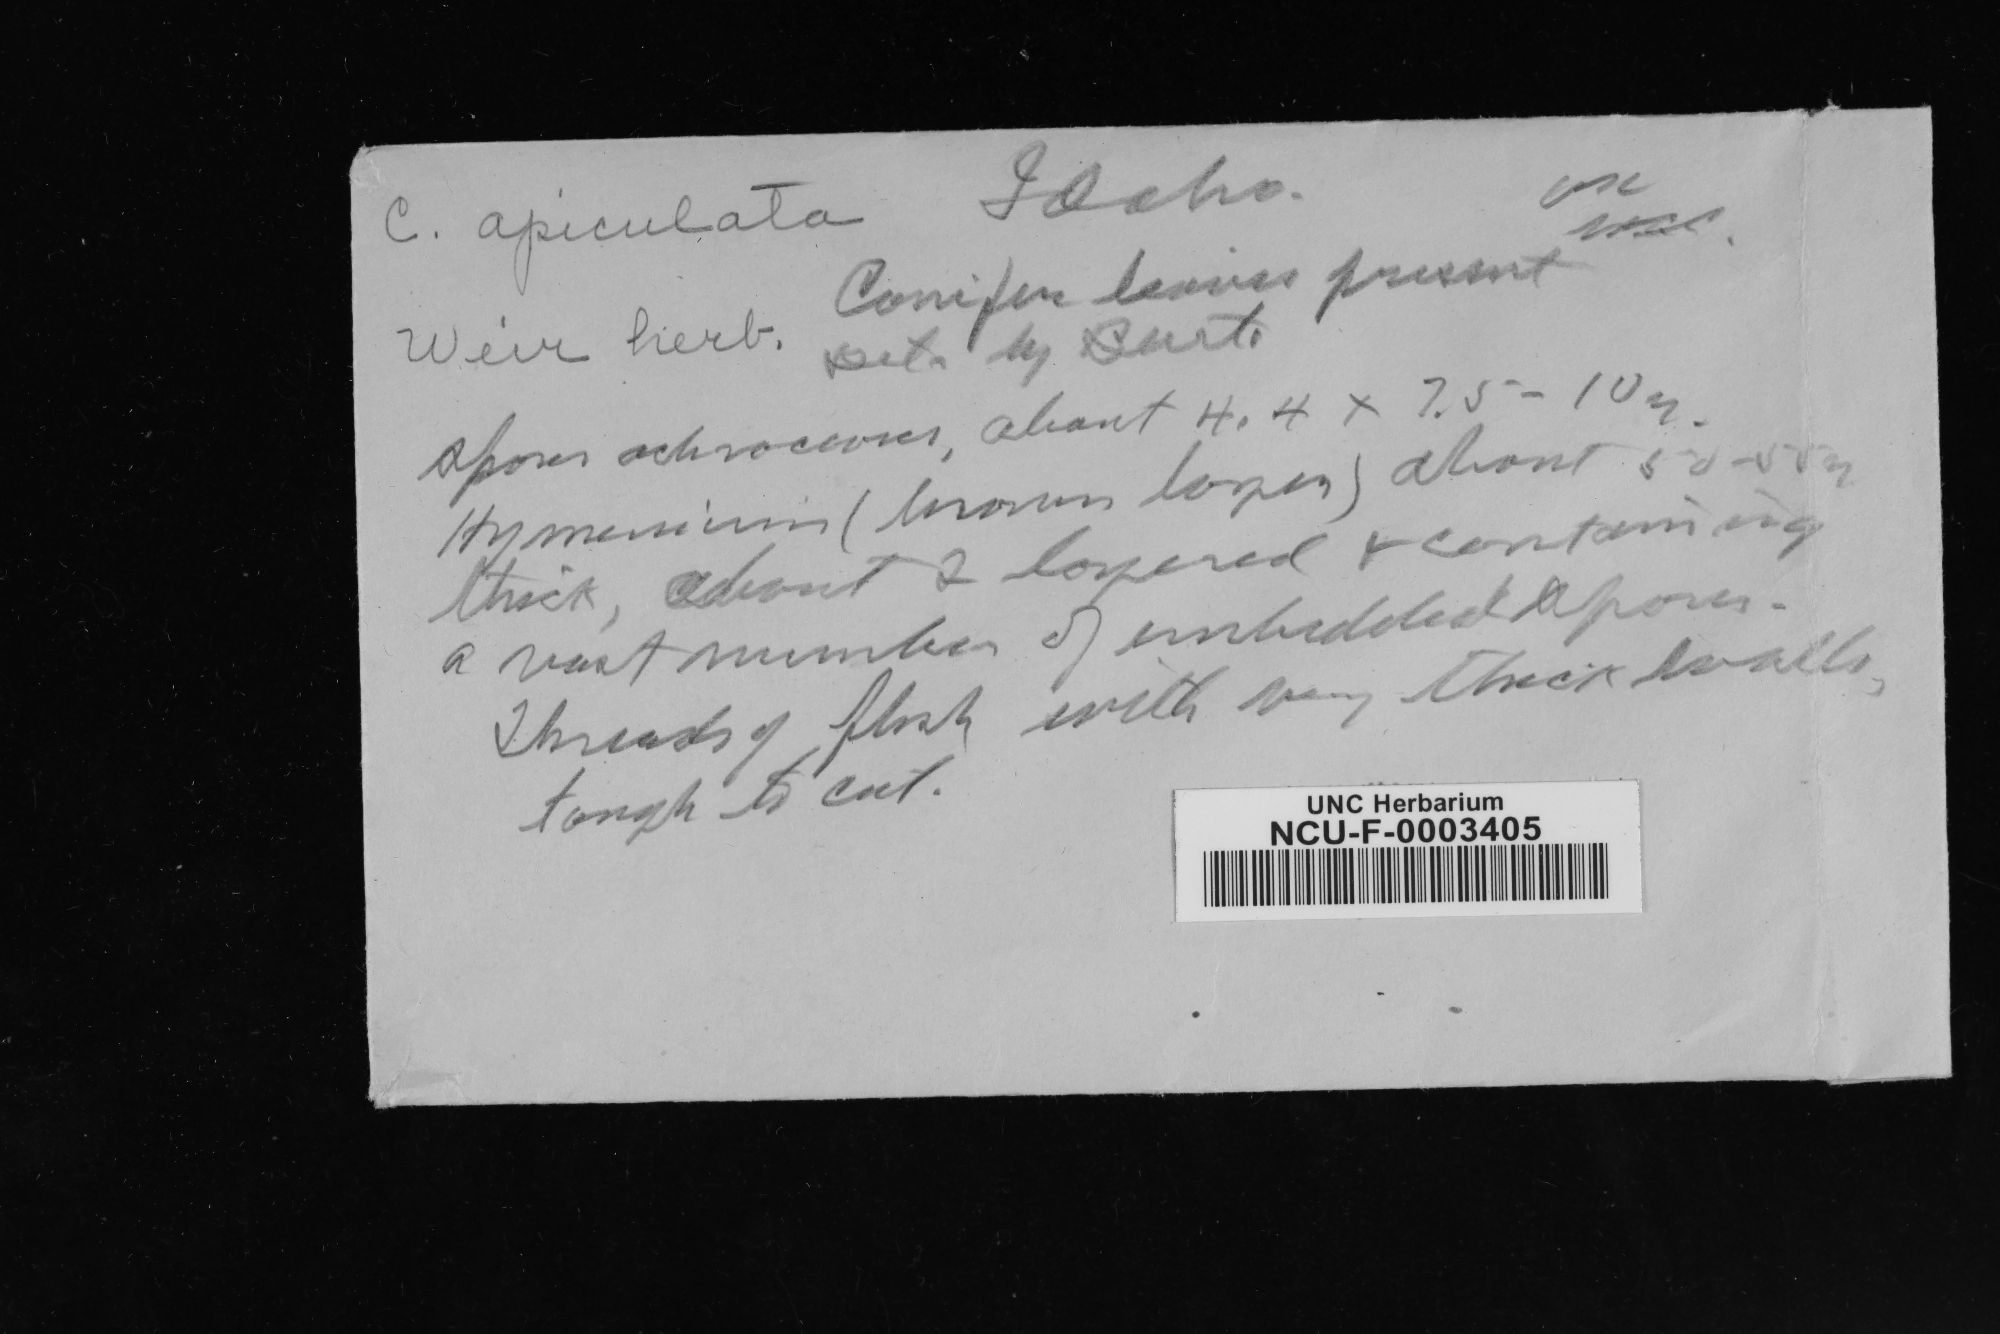 C. apiculata Idaho. on
Conifer leaves present
Weir herb. Det. by Burt.
Spores ochraceous, about 4.4 x 7.5-10 µ.
Hymenium (brown layer) about 50-55 µ
thick, about 2 layered & containing
a vast number of embedded spores.
Threads of flesh with very thick walls,
tough to cut.
UNC Herbarium
NCU-F-0003405